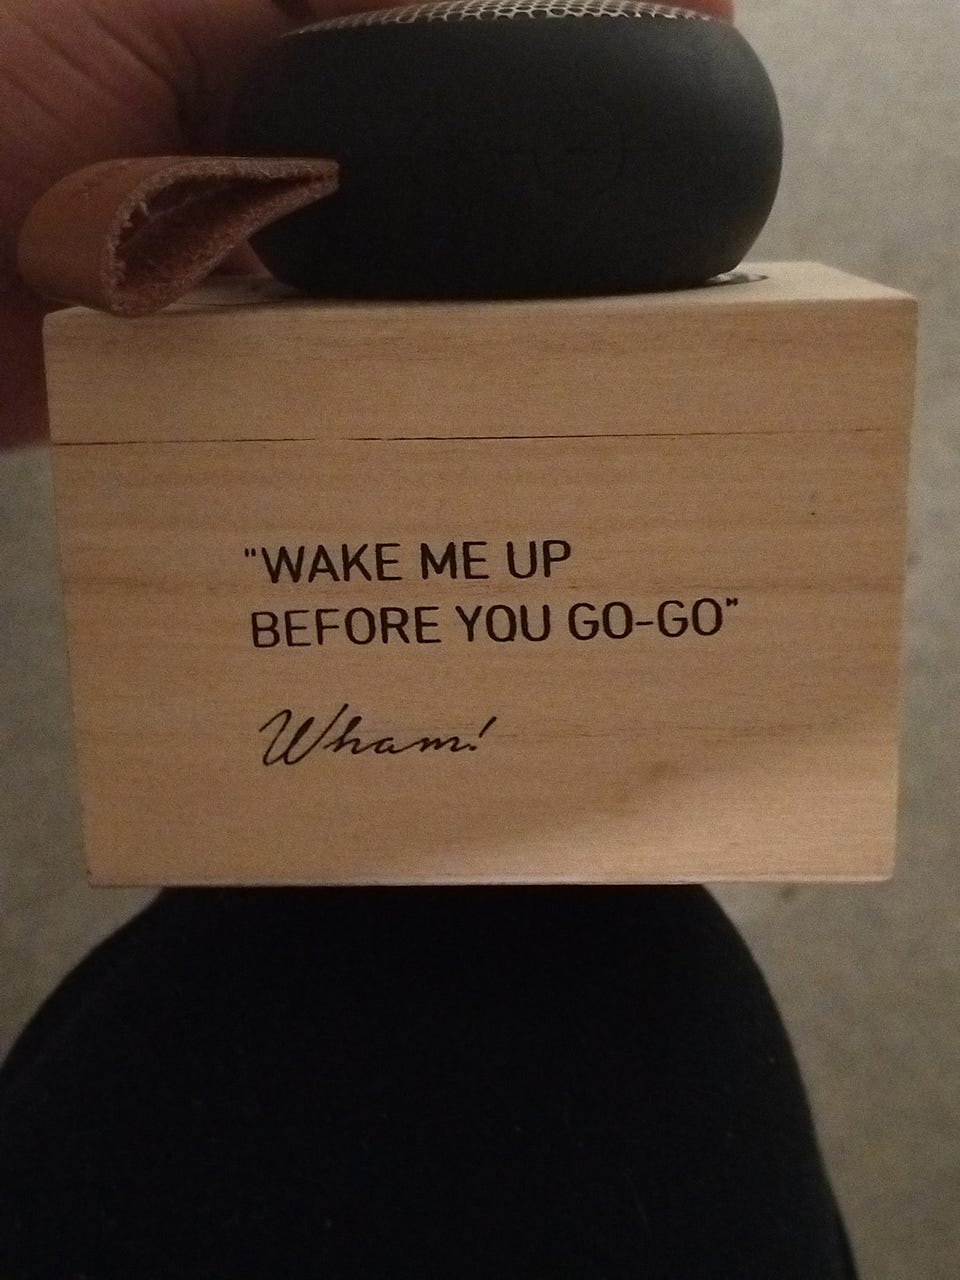 "WAKE ME UP
BEFORE YOU GO-GO"
Wham!